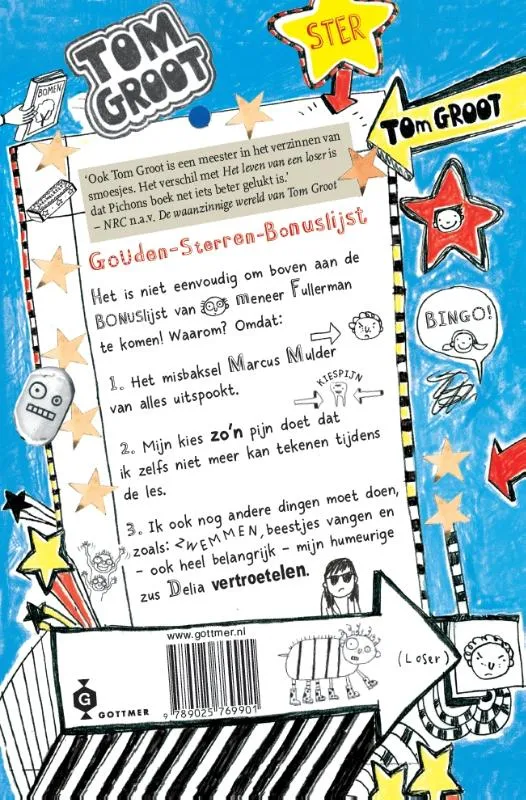 TOM
GROOT
STER
BOMEN
TOM GROOT
'Ook Tom Groot is een meester in het verzinnen van
smoesjes. Het verschil met Het leven van een loser is
dat Pichons boek net iets beter gelukt is.'
– NRC n.a.v. De waanzinnige wereld van Tom Groot
Gouden-Sterren-Bonuslijst
Het is niet eenvoudig om boven aan de
BONUSlijst van meneer Fullerman
te komen! Waarom? Omdat:
BINGO!
1. Het misbaksel Marcus Mulder
van alles uitspookt.
KIESPIJN
2. Mijn kies zo'n pijn doet dat
ik zelfs niet meer kan tekenen tijdens
de les.
3. Ik ook nog andere dingen moet doen,
zoals: ZWEMMEN, beestjes vangen en
– ook heel belangrijk – mijn humeurige
zus Delia vertroetelen.
www.gottmer.nl
(Loser)
G
GOTTMER
9 789025 769901